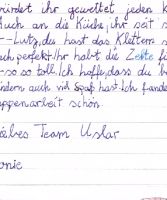 windet ihr gewettet jeden k
Auch an die Küche, ihr seit s
--Lutz, du hast das Klettern s
uch perfekt. Ihr habt die Zelte fü
-so so toll. Ich hoffe, dass du b
indern auch viel Spaß hast. Ich fande
uppenarbeit schön.
iebes Team Uslar
onie